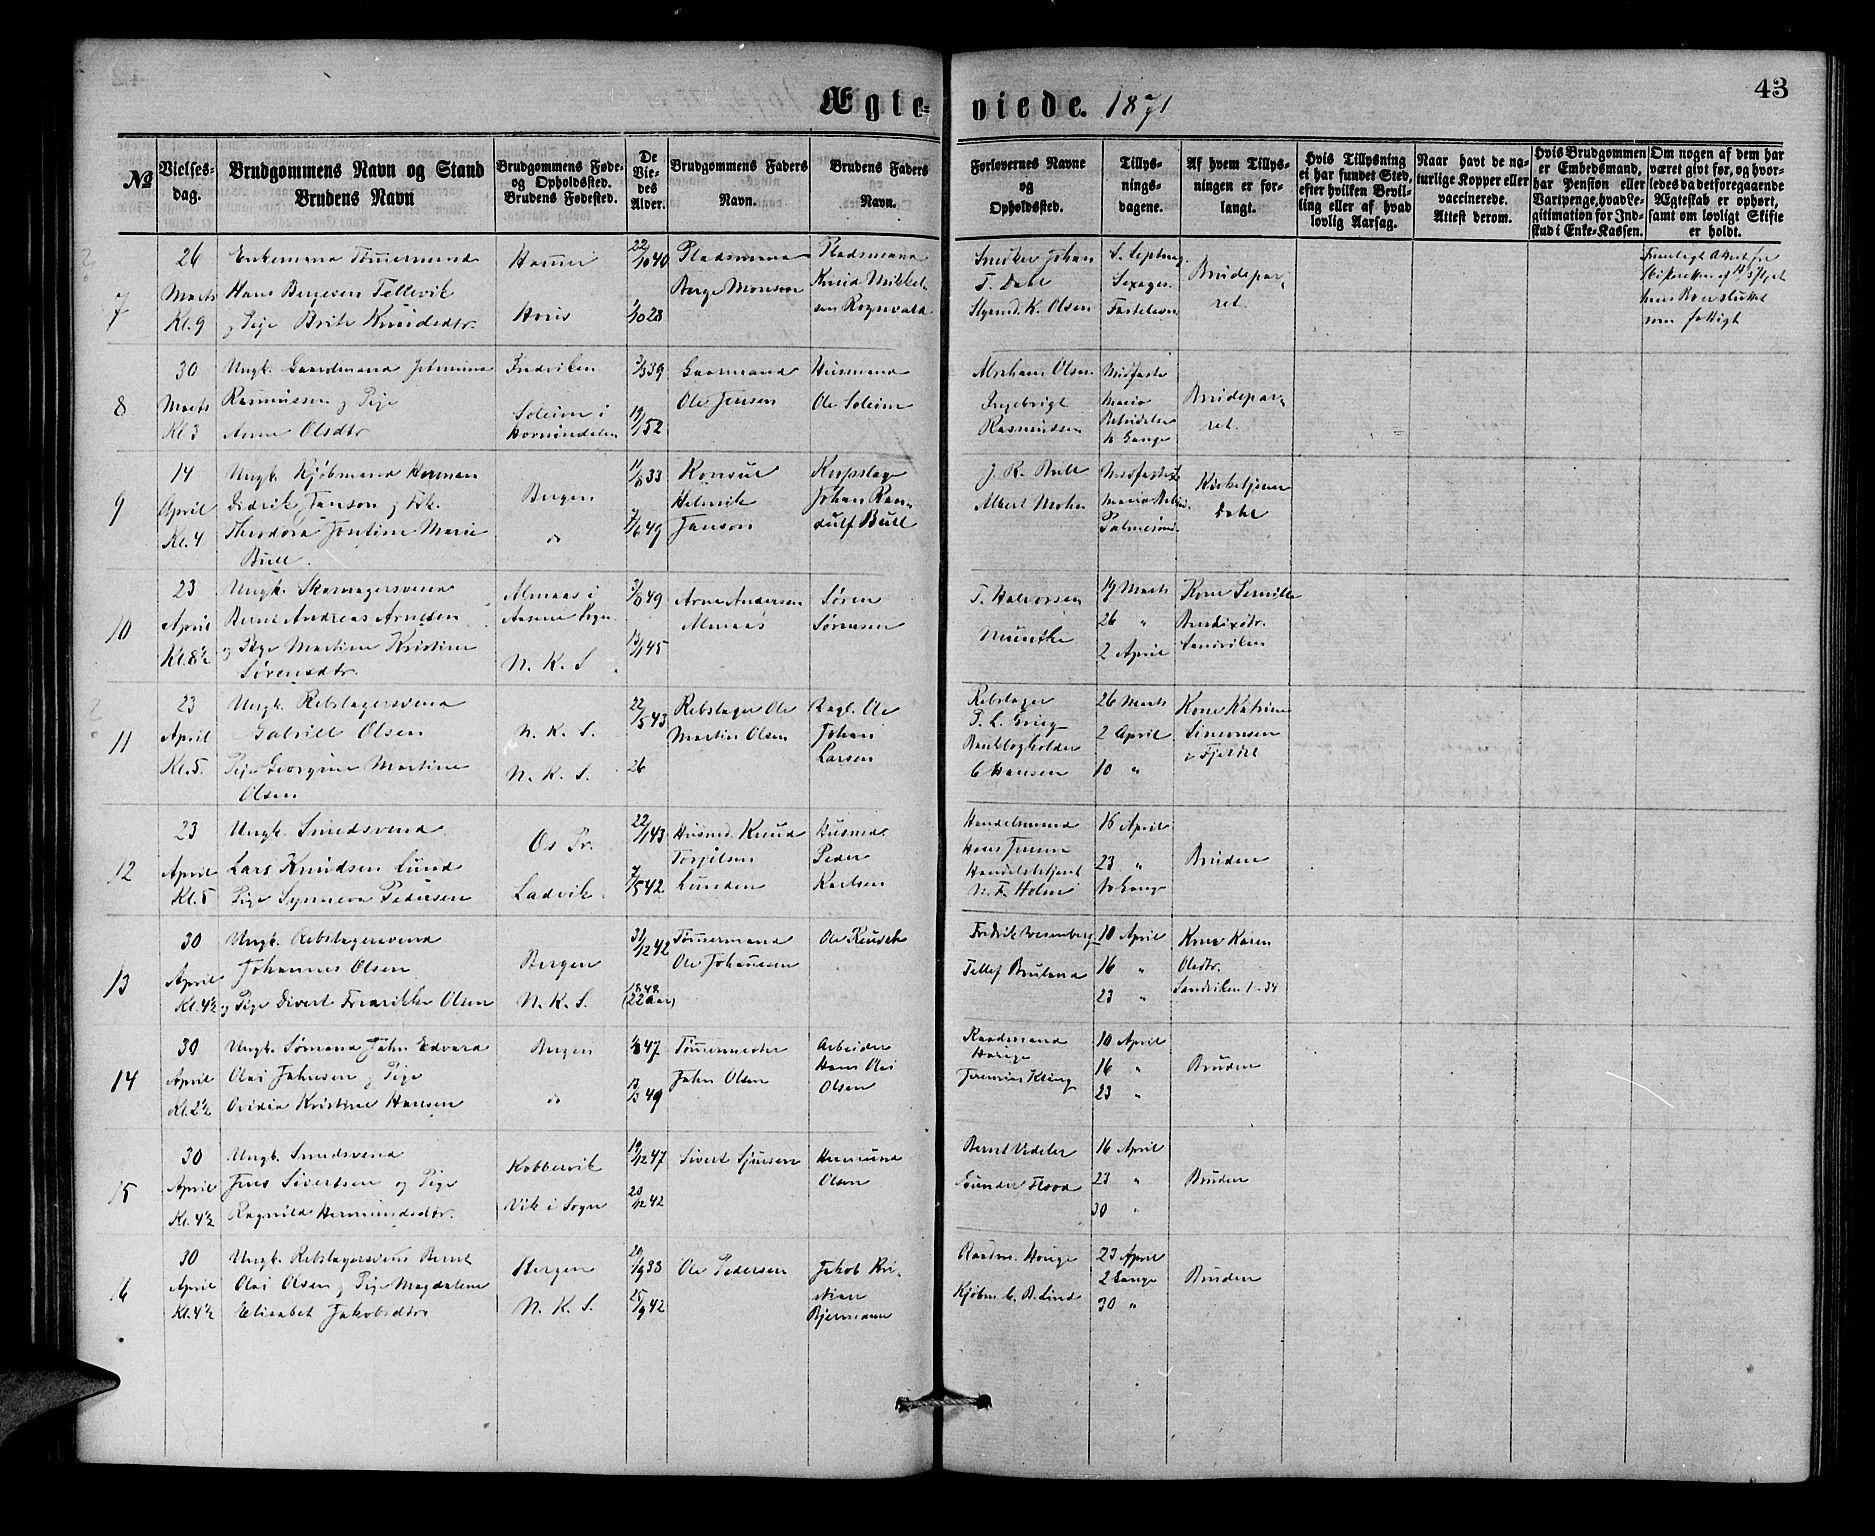 Ægte- viede. 1871
43
No
Vielses-
dag.
Brudgommens Navn og Stand
Brudens Navn
Brudgommens Føde-
og Opholdssted.
Brudens Fødested.
De
Vie-
des
Alder.
Brudgommens Faders
Navn.
Brudens Faders
Navn.
Forlovernes Navne
og
Opholdssted.
Tillys-
nings-
dagene.
Af hvem Tillys-
ningen er for-
langt.
Hvis Tillysning
ei har fundet Sted,
efter hvilken Bevil-
ling eller af hvad
lovlig Aarsag.
Naar havt de na-
turlige Kopper eller
vaccinerede.
Attest derom.
Hvis Brudgommen
er Embedsmand,
har Pension eller
Vartpenge, hvad Le-
gitimation for Ind-
skud i Enke-Kassen.
Om nogen af dem har
været givt før, og hvor-
ledes da det foregaaende
Ægteskab er ophørt,
samt om lovligt Skifte
er holdt.
7
26
Marts
Kl. 9
Enkemand Tømmermand
Hans Bergesen Tellevik
og Pige Brite Knudsdtr.
Hammer
Horis
22/10 40
1/10 28
Pladsmand
Berge Monsen
Pladsmand
Knud Mikkel-
sen Rognvald
Snedker Johan
T. Dahl
Styrmd. K. Olsen
S. Septuag.
Sexages.
Fastelavn
Brudepar-
ret.
som fattigt
8
30
Marts
Kl. 3
Ungk. Gaardmand
Rasmussen og Pige
Anne Olsdtr
Indviken
Soleim i
Hornindalen
3/3 39
19/1 52
Gaarmand
Ole Jensen
Husmand
Ole Soleim
Abraham Olsen
Ingebrigt
Rasmussen
Midfaste
Mariæ
Bebudelse
2 Gange
Brudepar-
ret.
9
14
April
Kl. 4
Ungk. Kjøbmand Herman
Didrik Janson og Frk.
Theodora Josefine Marie
Bull.
Bergen
do
11/8 33
7/6 49
Konsul
Helmik
Janson
Skipslæge
Johan Ran-
dulf Bull
J. R. Bull
Albert Mohn
Midfaste
Mariæ Bebud.
Palmesønd.
Kirketjener
Dahl
10
23
April
Kl. 8½
Ungk. Skomagersvend
Bernt Andreas Arnesen
og Pige Martine Kristine
Sørensdtr.
Almaas i
Aasene Sogn
N. K. S.
3/8 49
13/1 45
Arne Andersen
Almaas
Søren
Sørensen
T. Halvorsen
Munthe
19 Marts
26 "
2 April
Kone Pernille
Bendixdtr.
Sandviken
11
23
April
Kl. 5.
Ungk. Rebslagersvend
Gabriel Olsen
Pige Georgine Martine
Olsen
N. K. S.
N. K. S.
22/5 43
26
Rebslager Ole
Martin Olsen
Dagl. Ole
Johan
Larsen
Rebslager
P. L. Grieg
Bankbogholder
C Hansen
26 Marts
2 April
10 "
Kone Katrine
Simonsen
i Fjeldet
12
23
April
Kl. 5
Ungk. Smedsvend
Lars Knudsen Lund
Pige Synneva Pedersen
Os Pr.
Ladvik
22/1 43
7/5 42
Husmd. Knud
Torjilsen
Lunden
Husmd.
Peder
Karlsen
Handelsmand
Hans
Handelsbetjent
N. F. Holm
16 April
23 "
2 Gang
Bruden
13
30
April
Kl. 4½
Ungk. Rebslagersvend
Johannes Olsen
og Pige Divert Fredrikke Olsen
Bergen
N. K. S.
31/12 42
1848.
(22 Aar)
Tømmermand
Ole Johannesen
Ole Knudsen
Fredrik Wesenberg
Tellef Bruland
10 April
16 "
23 "
Kone Karen
Olsdtr.
Sandviken 1-34
14
30
April
Kl. 2½
Ungk. Sømand John Edvard
Olai Johnsen og Pige
Ovidia Kristine Hansen
Bergen
do
47
49
Tømmermester
John Olsen
Arbeider
Hans Olai
Olsen
Raadmand
Hauge
Jeremias Kling
10 April
16 "
23 "
Bruden
15
30
April
Kl. 4½
Ungk. Smedsvend
Jens Sivertsen og Pige
Ragnild Hermundsdtr.
Kobbervik
Vik i Sogn
19/12 47
20/12 42
Sivert Sjursen
Hermund
Olsen
Bernt Vedeler
Gunder Flood
16 April
23 "
30 "
Bruden
16
30
April
Kl. 4½
Ungk. Rebslagersvend Bernt
Olai Olsen og Pige Magdalene
Elisabet Jakobsdtr
Bergen
N. K. S.
20/9 38
25/9 42
Ole Pedersen
Jakob Kri-
stian
Bjermann
Raadm. Hauge
Kjøbm. C. B. Lind
23 April
2 Gange
30 "
Bruden